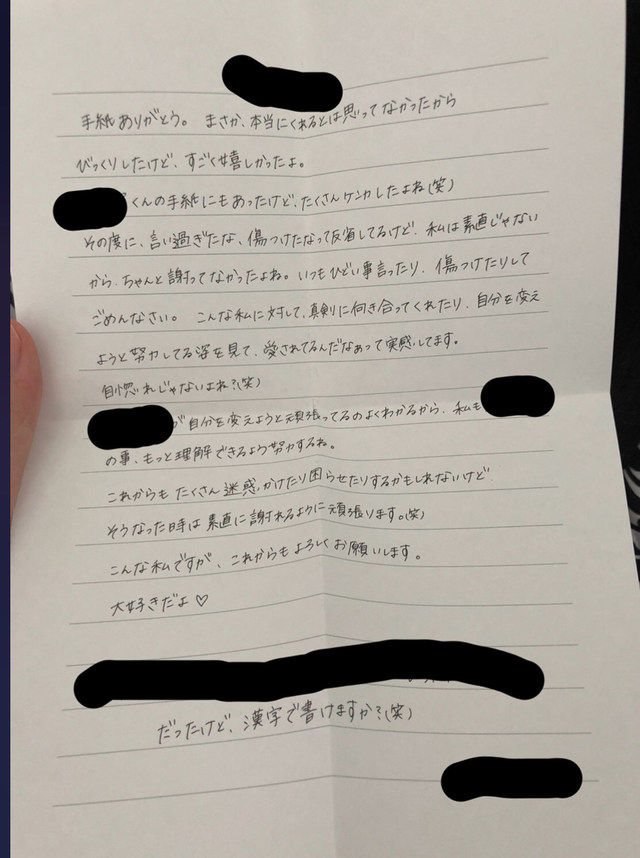 手紙ありがとう。 まさか、本当にくれるとは思ってなかったから
びっくりしたけど、すごく嬉しかったよ。
くんの手紙にもあったけど、たくさんケンカしたよね(笑)
その度に、言い過ぎたな、傷つけたなって反省してるけど、私は素直じゃない
から、ちゃんと謝ってなかったよね。いつもひどい事言ったり、傷つけたりして
ごめんなさい。 こんな私に対して、真剣に向き合ってくれたり、自分を変え
ようと努力してる姿を見て、愛されてるんだなぁって実感してます。
自惚れじゃないよね?(笑)
が自分を変えようと頑張ってるのよくわかるから、私も
の事、もっと理解できるよう努力するね。
これからも たくさん迷惑かけたり困らせたりするかもしれないけど、
そうなった時は素直に謝れるように頑張ります。(笑)
こんな私ですが、これからもよろしくお願いします。
大好きだよ♡
だったけど、漢字で書けますか?(笑)